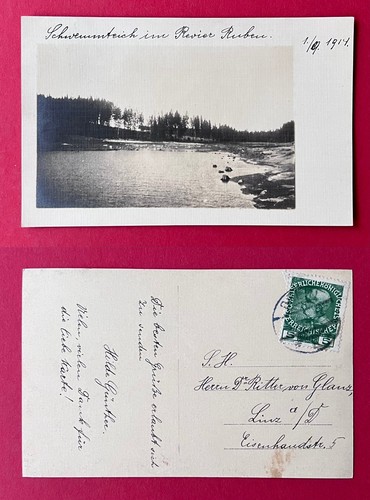 Schwemmteich im Revier Ruben.
1/9 1914.
Die besten Grüße erlaubt sich
zu senden
Hilde Günther.
Vielen, vielen Dank für
die liebe Karte!
S. H.
Herrn Dr. Ritter von Glanz,
Linz a/D
Eisenhandstr. 5